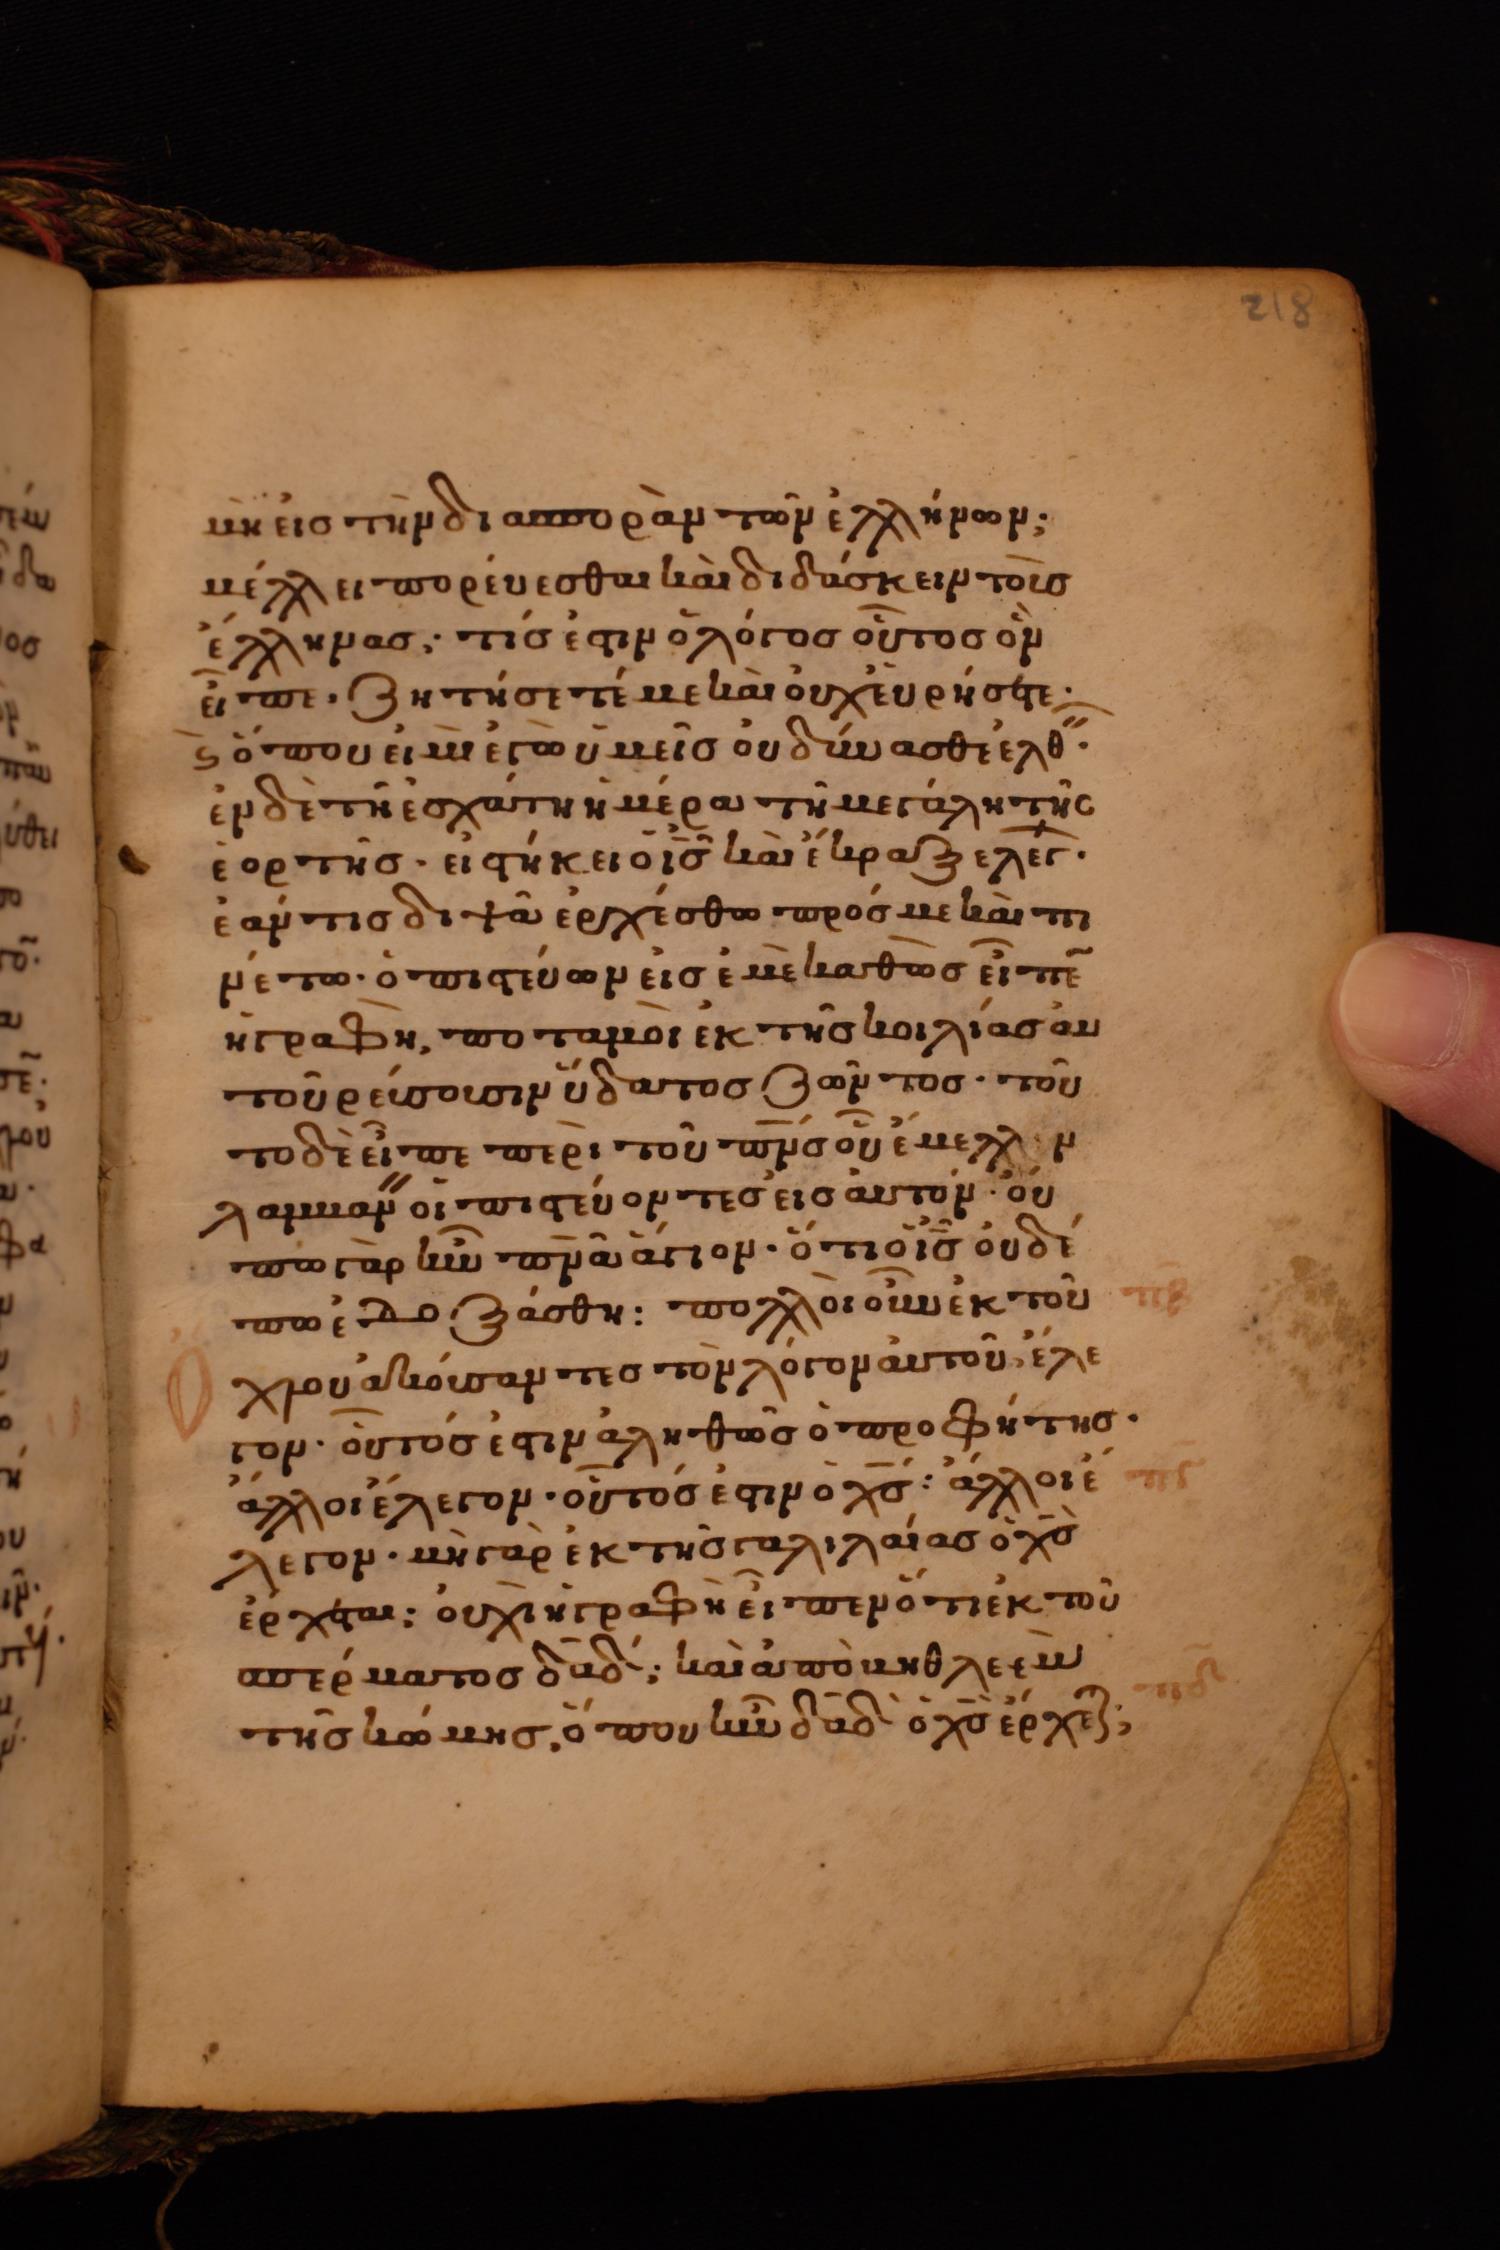 218
μὴ εἰς τὴν διασπορὰν τῶν ἑλλήνων;
μέλλει πορέυεσθαι καὶ διδάσκειν τοὺς
ἕλληνας; τίς ἐστιν ὁ λόγος οὗτος ὃν
εἶπε. ζητήσετέ με καὶ οὐχ εὑρήσετε.
ϛ ὅπου εἰμὶ ἐγὼ ὑμεῖς οὐ δύνασθε ἐλθ῀.
ἐν δὲ τῆ ἐσχάτη ἡμέρα τῆ μεγάλη τῆς
ἑορτῆς. εἱστήκει ὁ ἰς̅ καὶ ἔκραζε λέγ.
ἐάν τις διψᾶ ἐρχέσθω πρός με καὶ πι
νέτω. ὁ πιστεύων εἰς ἐμὲ καθὼς εἶπε̅
ἡ γραφὴ, ποταμοὶ ἐκ τῆς κοιλίας αυ
τοῦ ρεύσουσιν ὕδατος ζῶντος. τοῦ
το δὲ εἶπε περὶ τοῦ πν̅ς οὗ ἔμελλ ν
λαμβάν῀ οἱ πιστεύοντες εἰς αὐτόν. οὔ
πω γὰρ ἦν πν̅α ἅγιον. ὅτι ὁ ἰς̅ οὐδέ
πω ἐδοξάσθη: πολλοὶ οὖν ἐκ τοῦ
ὄχλου ἀκούσαντες τὸν λόγον αὐτοῦ, ἔλε
γον. οὗτός ἐστιν ἀληθῶς ὁ προφήτης.
ἄλλοι ἔλεγον. οὗτός ἐστιν ὁ χς̅: ἄλλοι ἔ
λεγον. μὴ γὰρ ἐκ τῆς γαλιλαίας ὁ χς̅
ἔρχεται; οὐχὶ ἡ γραφὴ εἶπεν ὅτι ἐκ τοῦ
σπέρματος δα̅δ; καὶ ἀπὸ βηθλεὲμ
τῆς κώμης, ὅπου ἦν δα̅δ ὁ χς̅ ἔρχεται;